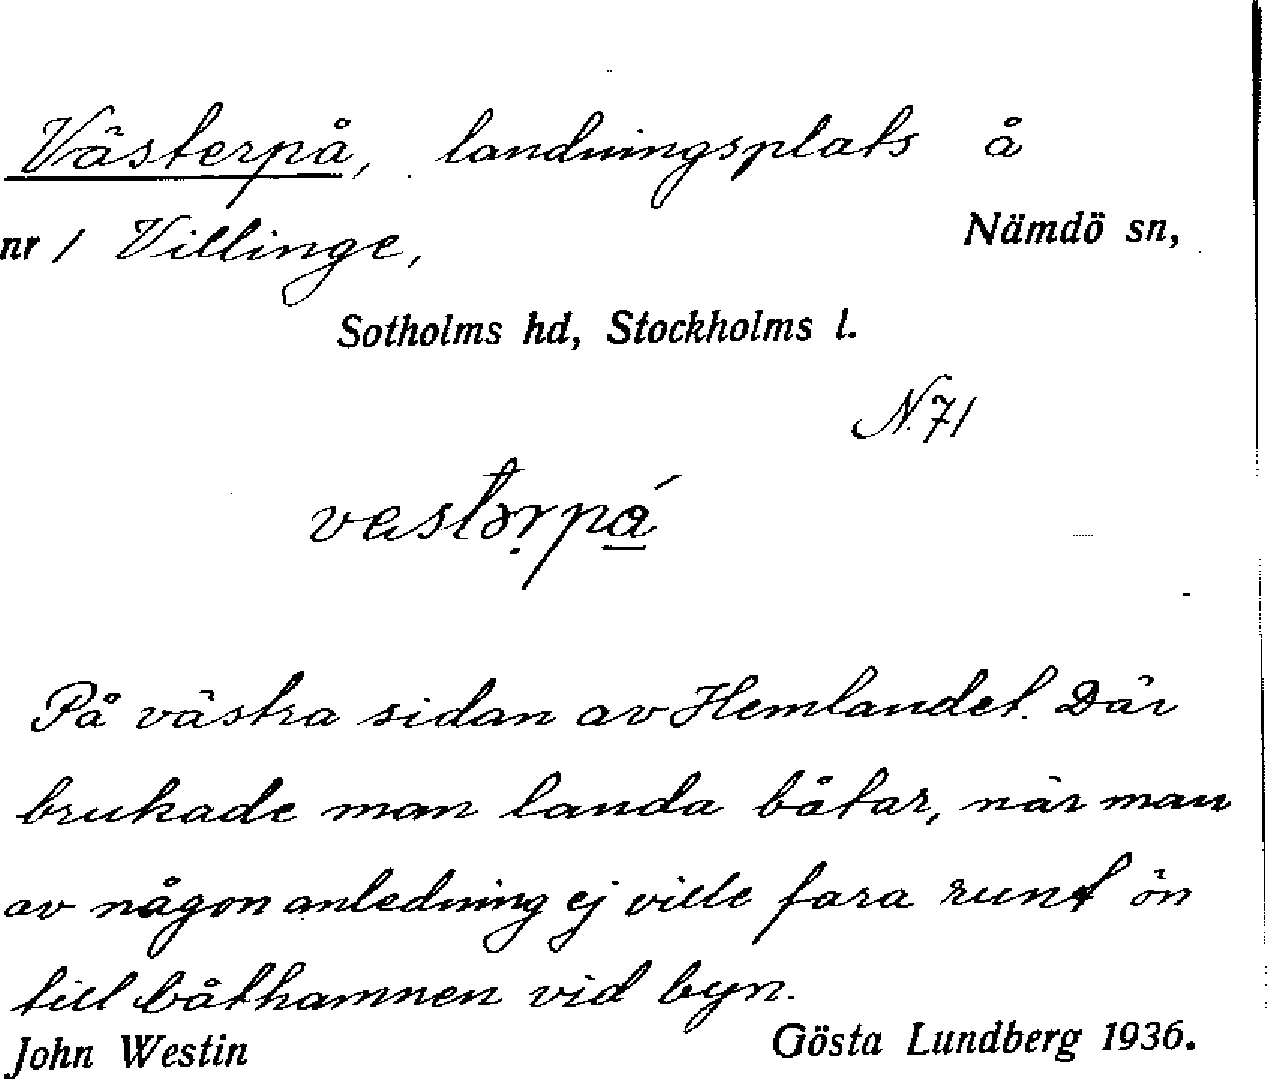 Västerpå, landningsplats å
nr 1 Villinge, Nämdö sn,
Sotholms hd, Stockholms l.
N.71
vestərpá
På västra sidan av Hemlandet. Där
brukade man landa båtar, när man
av någon anledning ej ville fara runt ön
till båthamnen vid byn.
John Westin Gösta Lundberg 1936.